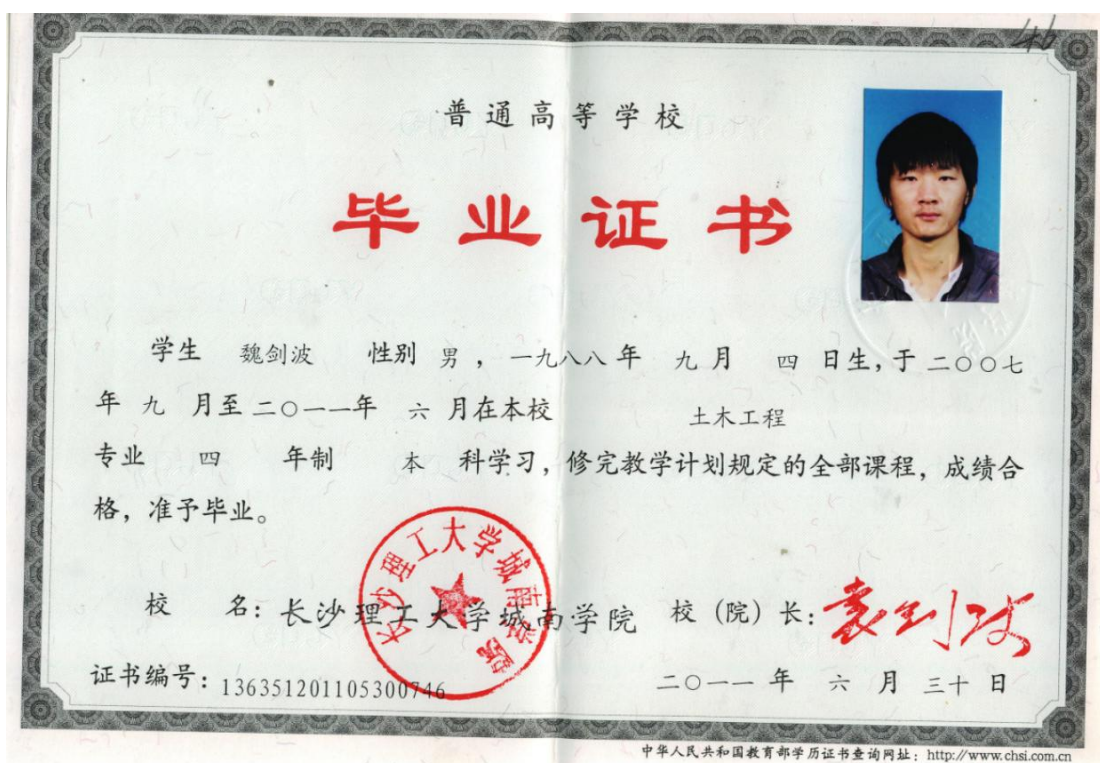 46
普通高等学校
毕业证书
学生 魏剑波 性别 男，一九八八年 九月 四日生，于二〇〇七
年九月至二〇一一年 六月在本校 土木工程
专业 四 年制 本 科学习，修完教学计划规定的全部课程，成绩合
格，准予毕业。
长沙理工大学城南学院
校 名：长沙理工大学城南学院 校（院）长：
证书编号：136351201105300746 二〇一一年 六月三十日
中华人民共和国教育部学历证书查询网址：http://www.chsi.com.cn